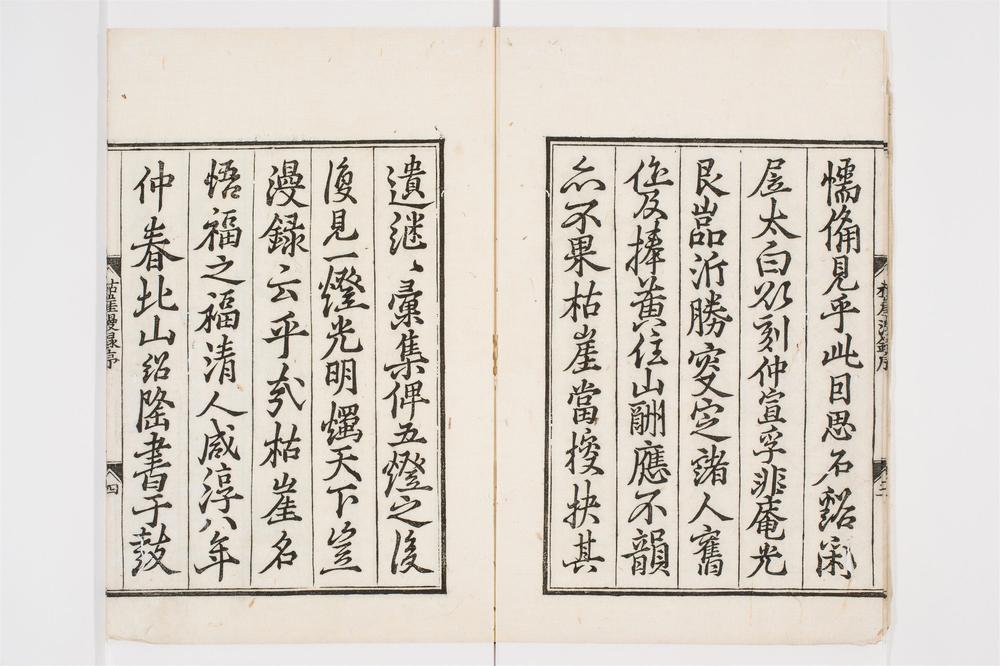 懦備見乎此因思石谿
居太白欲刻仲宣孚非庵光
艮嵓沂勝叟定諸人舊
及捧黄住山酬應不韻
亦不果枯崖當搜抉其
枯崖漫錄序
遺継〻彙集俾五燈之後
復見一燈光明燭天下豈
漫録云乎㢤枯崖名
悟福之福清人咸淳八年
仲春北山紹隆書于鼓
枯崖漫録序
四